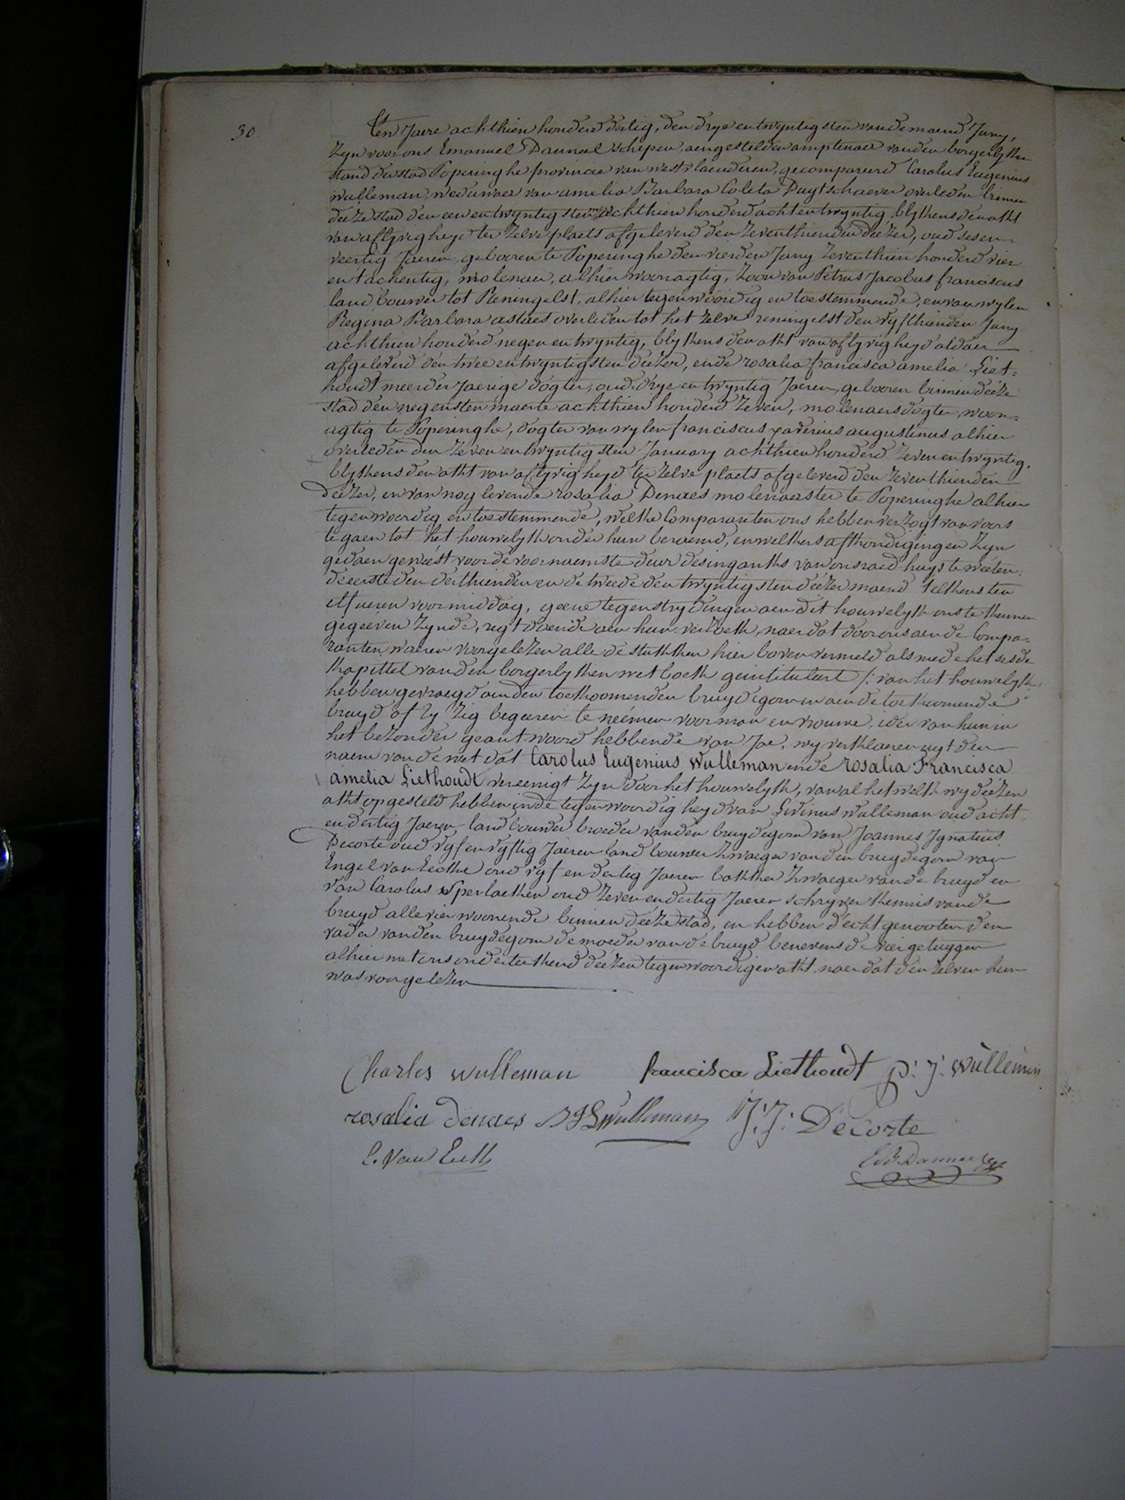 30
Ten Jaere achthien honderd dertig, den drye en twyntigsten van de maend Juny,
zyn voor ons Emanuel Daunoel schepen, aengestelden amptenaer van den borgerlyken
stand der stad Poperinghe provincie van west vlaenderen, gecompareerd Carolus Eugenius
Wulleman, weduwaer van amelia Barbara Coleta Duytschaever overleden binnen
deéze stad den een en twyntigsten achthien honderd acht en twyntig, blykens den akt
van aflyvigheyd ter zelve plaets afgeleverd den zeventhienden déézer, oud sesen
veertig Jaeren, geboren te Poperinghe den vierden Juny zeventhien honderd vier
en tachentig, molenaer, alhier woonagtig, zoon van Petrus Jacobus franciscus
landbouwer tot Reningelst, alhier tegenwoordig en toestemmende, en van wylen
Regina Barbara overleden tot het zelve reningelst den vyfthienden Juny
achthien honderd negen en twyntig, blykens den akt van aflyvigheyd aldaer
afgeleverd den twee en twyntigsten déézer, ende rosalia francisca amelia Liet-
houdt meerderjaerige dogter, oud drye en twyntig Jaeren, geboren binnen dééze
stad den negensten maerte achthien honderd zeven, molenaers dogter, woon-
agtig te Poperinghe, dogter van wylen franciscus xaverius augustinus alhier
overleden den zeven en twyntigsten January achthien honderd zeven en twyntig,
blykens den akt van aflyvigheyd ter zelve plaets afgeleverd den zeventhienden
déézer, en van nog levende rosalia Denaes molenaerster te Poperinghe alhier
tegenwoordig en toestemmende, welke Comparanten ons hebben verzogt van voors
te gaen tot het houwelyk onder hun beraemd, en welkers afkondigingen zyn
gedaen geweest voor de voornaemste deur des ingangks van ons raedhuys te weeten:
de eerste den derthienden en de tweede den twyntigsten déézer maend telkens ten
elf ueren voormiddag, geene tegenstrydingen aen dit houwelyk ons te kennen
gegeeven zynde, regt doende aen hun verzoek, naer dat door ons aen de Compa-
ranten waeren voorgelezen alle de stukken hier boven vermeld als mede het sesde
kapittel van den borgerlyken wetboek geintituleert /: van het houwelyk
hebben gevraegd aen den toekoomenden bruydegom en aen de toekoomende
bruyd of zy zig begeeren te néémen voor man en vrouwe, elk van hun in
het bezonder geantwoord hebbende van Jae, wy verklaeren uyt den
naem van de wet dat Carolus Eugenius Wulleman ende rosalia Francisca
amelia Liethoudt vereenigt zyn door het houwelyk, van al het welk wy déézen
akt opgesteld hebben in de tegenwoordigheyd van Livinus Wulleman oud acht
en dertig Jaeren landbouwer broeder van den bruydegom van Joannes Ignatius
Decorte oud vyf en vyftig Jaeren landbouwer zwaeger van den bruydegom van
Engel van Eecke oud vyf en dertig Jaeren bakker zwaeger van de bruyd en
van Carolus Sperlaeken oud zeven en dertig Jaeren schryver kennis van de
bruyd alle vier woonende binnen dééze stad, en hebben d'echtgenooten, den
vader van den bruydegom de moeder van de bruyd benevens de vier getuygen
alhier met ons onderteekend déézen tegenwoordigen akt, naer dat den zelven hun
was voorgelezen
Charles Wulleman francisca Liethoudt p: j: Wulleman
rosalia denaes Wulleman J: J: DeCorte